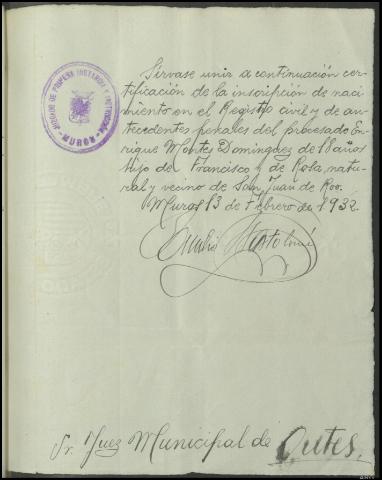 JUZGADO DE PRIMERA INSTANCIA E INSTRUCCIÓN
MUROS
Sírvase unir a continuación cer-
tificación de la inscripción de naci-
miento en el Registro civil y de an-
tecedentes penales del procesado En-
rique Montes Dominguez de 18 años
hijo de Francisco y de Rosa, natu-
ral y vecino de San Juan de Roo.
Muros 13 de Febrero de 1932.
Sr. Juez Municipal de Outes.